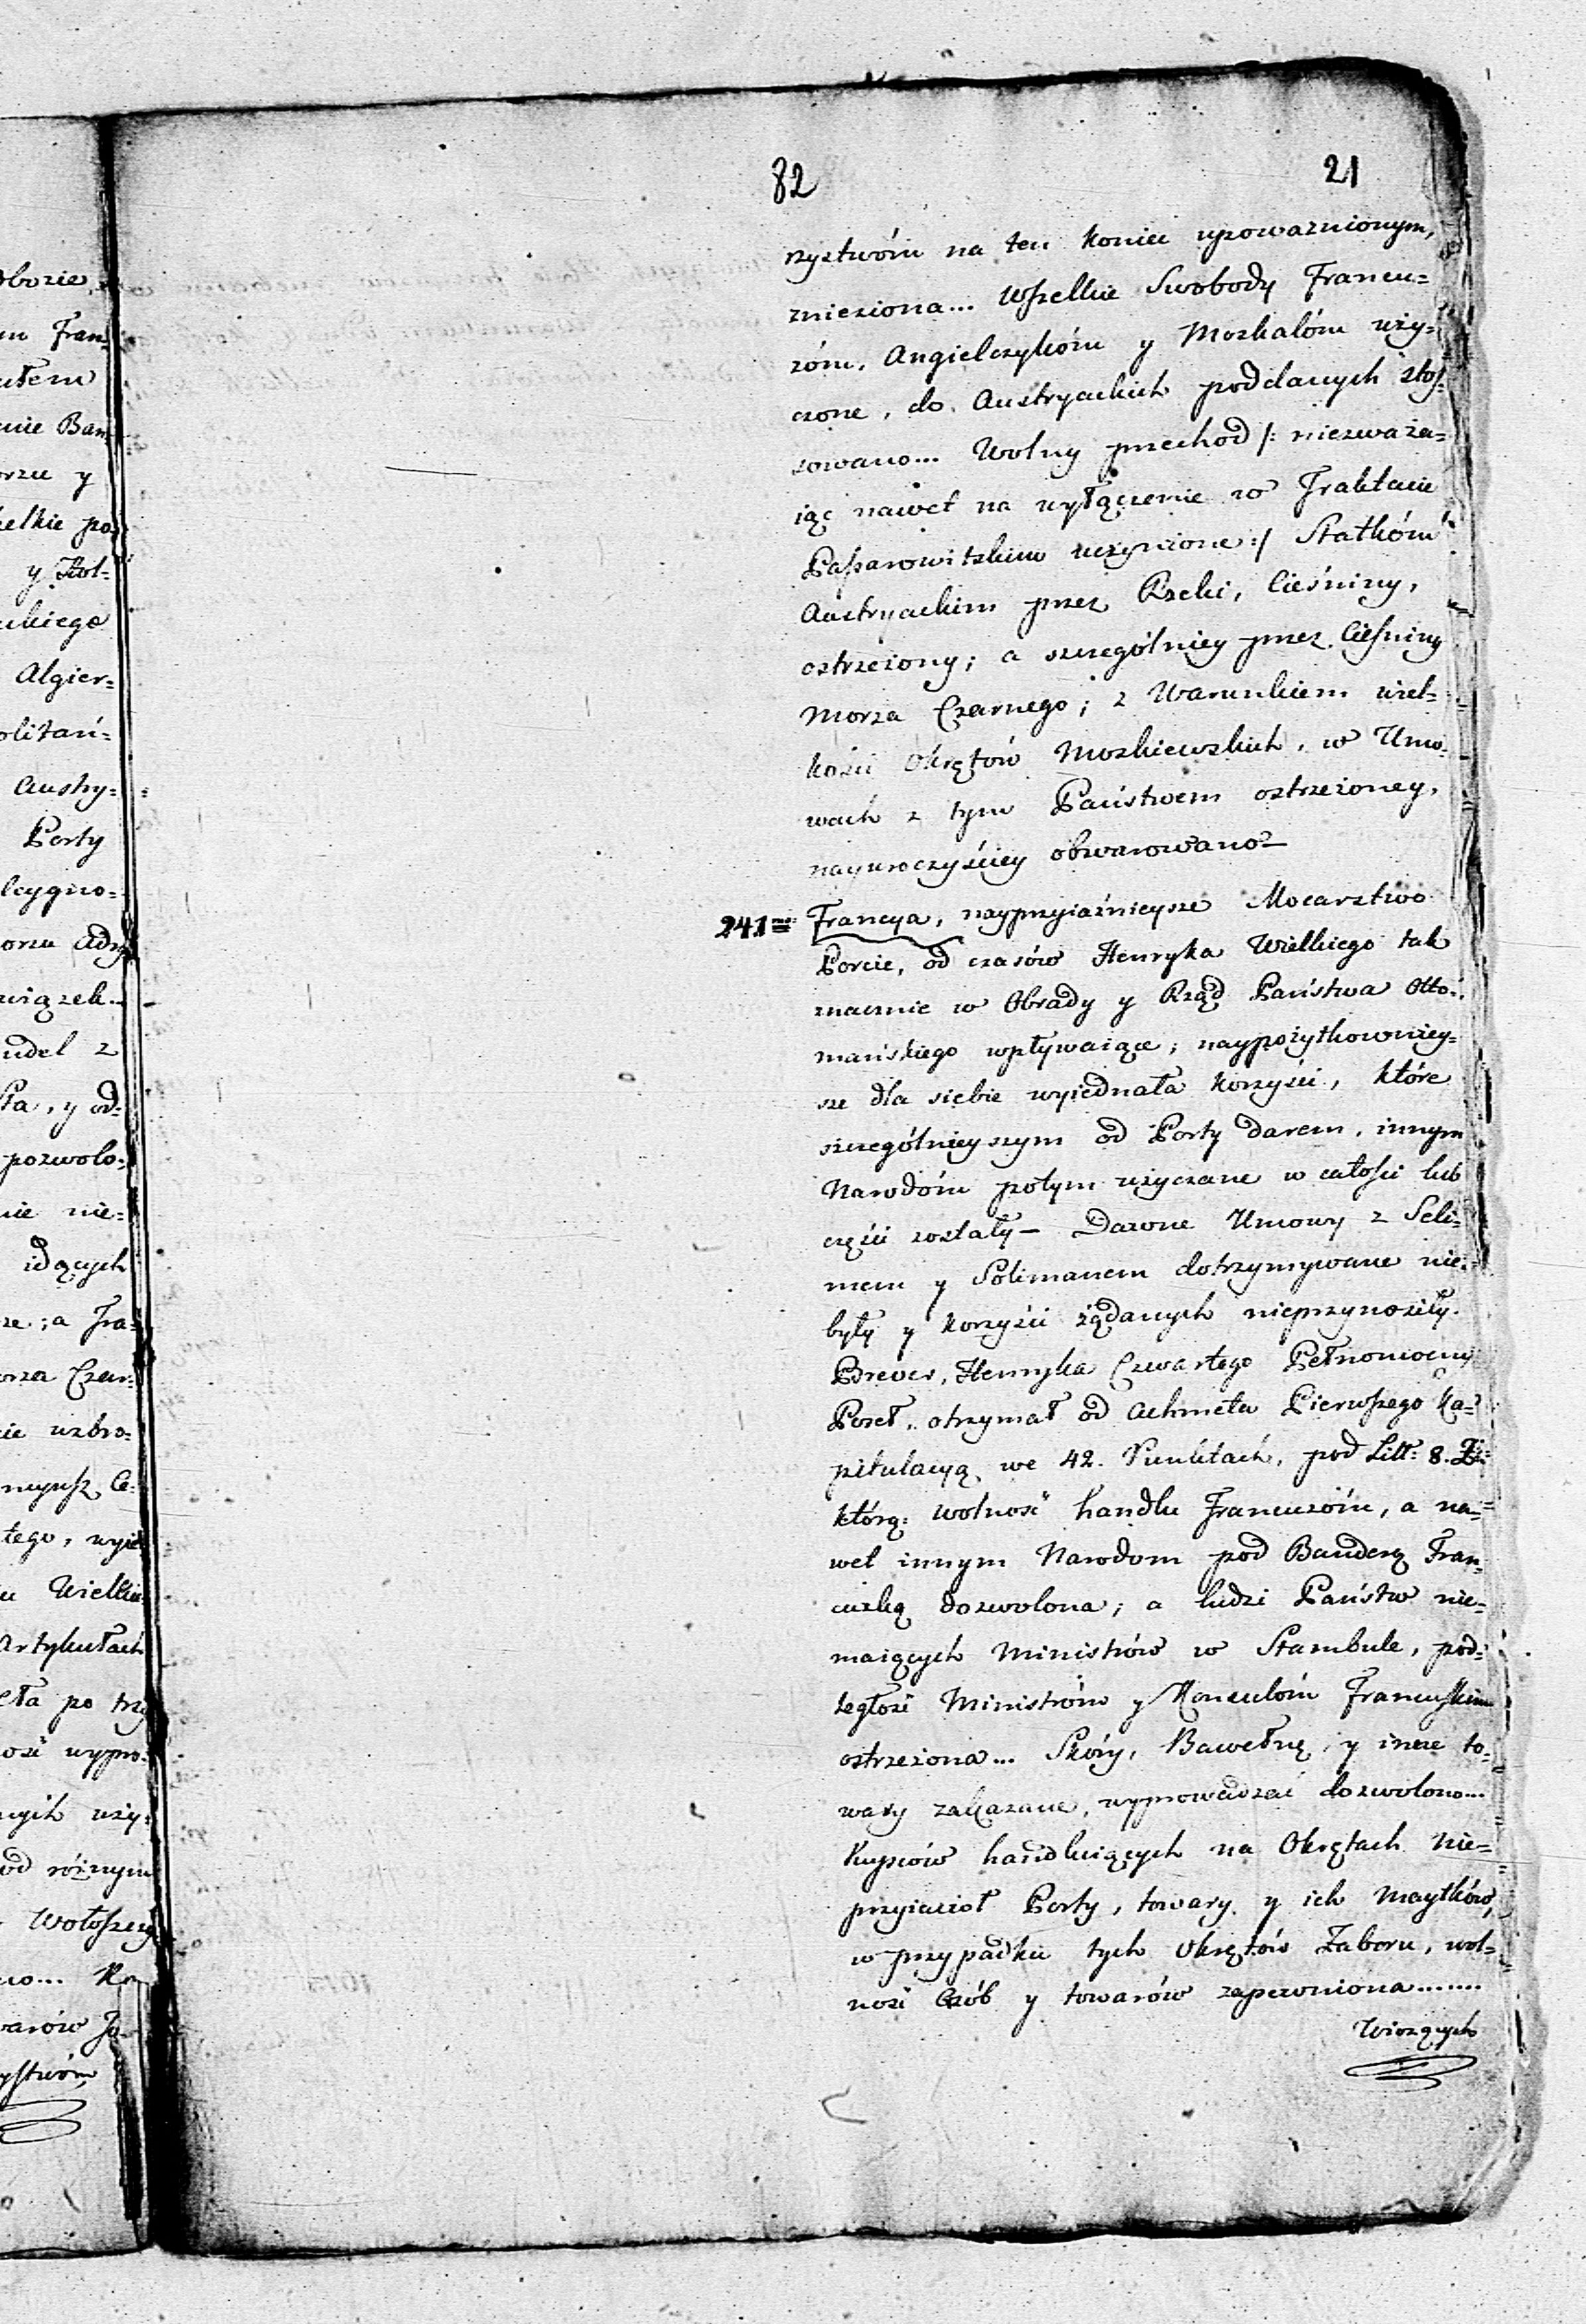 82
21
rzystwóm na ten koniec upoważnionym,
zniesiona... Wszelkie Swobody Francu=
zóm, Angielczykóm y Moskalóm uży=
czone, do Austryackich poddanych stos=
sowano... Wolny przechod /: niezważa=
iąc nawet na wyłączenie w Traktacie
Passarowitskim uczynione :/ Statkóm
Austryackim przez Rzeki, Cieśniny,
ostrzeżony; a szczególniey przez Cieśniny
Morza Czarnego; z Warunkiem wiel=
kości Okrętów Moskiewskich, w Umo=
wach z tym Państwem ostrzeżoney,
nayuroczyściey obwarowano—
241= Francya, nayprzyiaźnieysze Mocarstwo
Porcie, od czasów Henryka Wielkiego tak
znacznie w Obrady y Rząd Państwa Otto=
mańskiego wpływaiące; naypożytkownicy=
sze dla siebie wyiednała korzyści, które
szczególnieyszym od Porty darem, innym
Narodóm potym użyczane w całości lub
części zostały — Dawne Umowy z Seli=
mem y Solimanem dotrzymywane nie=
były y korzyści żądanych nieprzynosiły.
Breves, Henryka Czwartego Pełnomocny
Poseł, otrzymał od Achmeta Pierwszego Ka=
pitulacyą we 42. Punktach, pod Litt: 8. Z:
którą: wolność handlu Francuzóm, a na=
wet innym Narodom pod Banderą Fran=
cuzką dozwolona; a ludzi Państw nie=
maiących Ministrów w Stambule, pod=
ległość Ministróm y Konsulóm Francuskim
ostrzeżona... Skóry, Bawełnę, y inne to=
wary zakazane, wyprowadzać dozwolono...
Kupców handluiących na Okrętach Nie=
przyiaciół Porty, towary y ich Maytków,
w przypadku tych Okrętów Zaboru, wol=
ność Osób y towarów zapewniona.......
Wiozących
dborze,
m Fran=
ułem
nie Ban=
orzu y
elkie po=
y Hol=
ckiego
Algier=
olitań=
Austry=
Porty
leygno=
orzu Ady
wiązek
ndel z
ła, y od=
pozwolo=
nie nie=
idących
ze; a Fra=
orza Czar=
ie uzbro=
tego, wyie
u Wielkie
Artykułach
eta po trzy
ość wypro=
nych uży=
od różnym
Wołoszczy
no... Ko
warów Ja
ystwóm